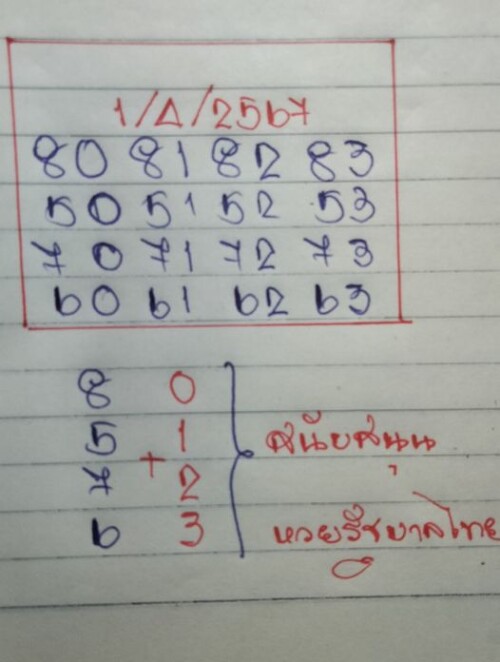 1/4/2567
80 81 82 83
50 51 52 53
70 71 72 73
60 61 62 63
8 0
5 1
+
7 2
6 3
สนับสนุน
หวยรัฐบาลไทย